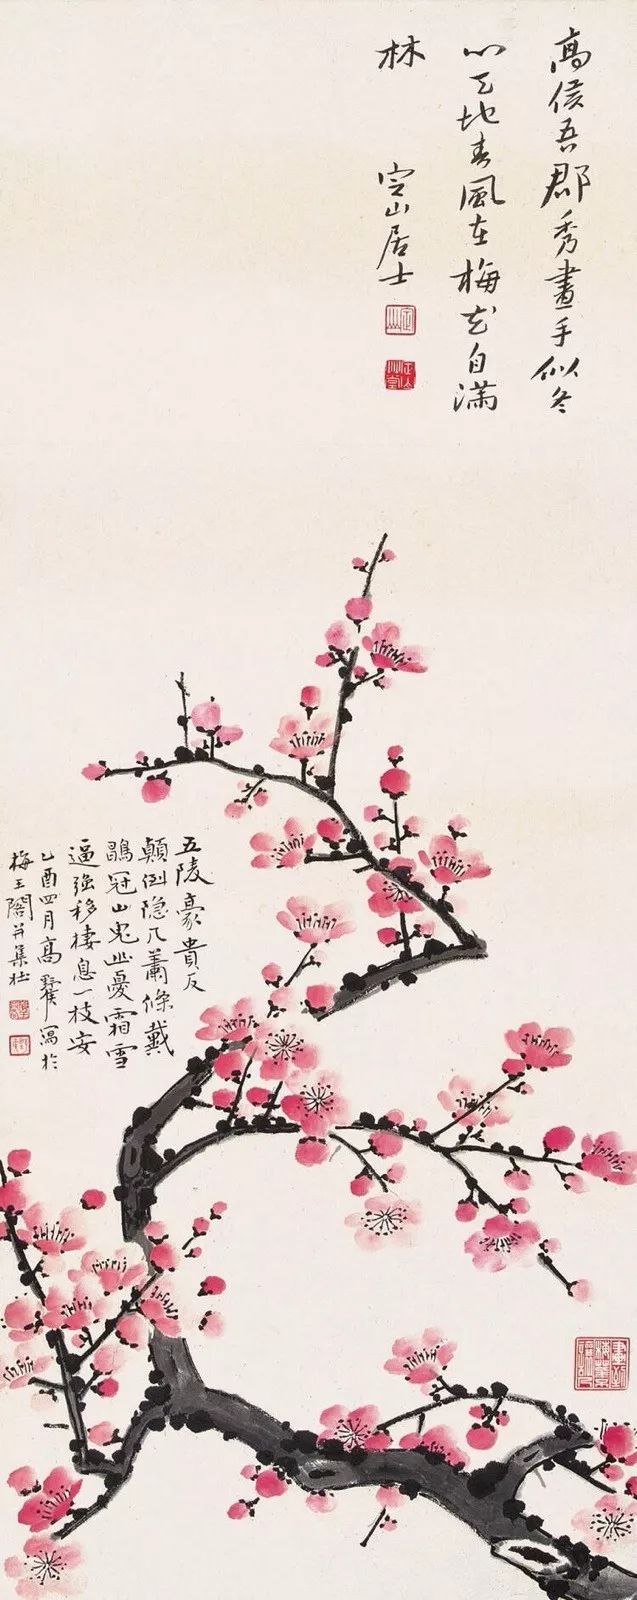 高侯吾郡秀畫手似冬
心天地春風在梅花自滿
林 定山居士
五陵豪貴反
顛倒隱几蕭條戴
鶡冠山鬼幽憂霜雪
逼強移棲息一枝安
乙酉四月高野侯寫於
梅王閣并集杜